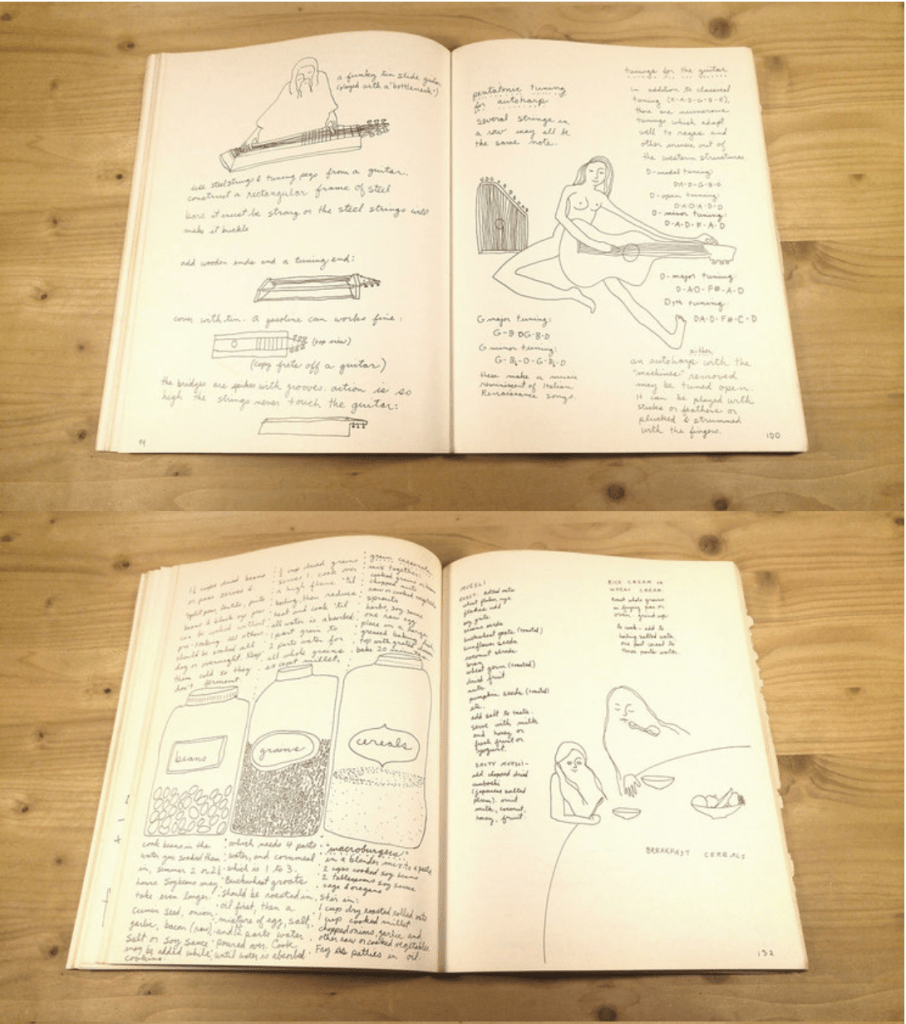 a funky tin slide guitar
(played with a "bottleneck")
use steel strings & tuning pegs from a guitar.
construct a rectangular frame of steel
bars it must be strong or the steel strings will
make it buckle
add wooden ends and a tuning end:
cover with tin. A gasoline can works fine:
(top view)
(copy frets off a guitar)
the bridges are spikes with grooves. action is so
high the strings never touch the guitar:
pentatonic tuning
for autoharp
several strings in
a row may all be
the same note.
tunings for the guitar
in addition to classical
tuning (E-A-D-G-B-E),
there are numerous
tunings which adapt
well to ragas and
other music out of
the western structures.
D-modal tuning:
D-minor tuning:
D-A-D-F-A-D
D-major tuning:
D-A-D-F#-A-D
tuning:
G major tuning:
G minor tuning:
these make a music
reminiscent of Italian
Renaissance songs.
an autoharp with the
either
"machines" removed
may be tuned open.
It can be played with
sticks or feathers or
plucked & strummed
with the fingers.
100
1½ cups dried beans
or peas serves 6
split peas, lentils, pinto
beans & black eye peas
can be cooked without
pre-soaking. all others
should be soaked all
day or overnight. Keep
them cold so they
don't ferment.
dried grains
serves 1. cook over
a high flame 'til
boiling then reduce
heat and cook 'til
all water is absorbed.
1 part grain to
2 parts water for
all whole grains
except millet,
grain casserole
mix together:
cooked grains or beans
chopped nuts
raw or cooked vegetables
sprouts
herbs, soy sauce
one raw egg
place in a large
greased baking dish
top with grated
bake 20 minutes
beans
grains
cereals
cook beans in the
water you soaked them
in, simmer 2 or 2½
hours Soybeans may
take even longer.
Cumin seed, onion,
garlic, bacon (raw)
salt or soy sauce
may be added while
cooking.
which needs 4 parts
water, and cornmeal
which is 1 to 3.
Buckwheat groats
should be roasted in
oil first, then a
mixture of egg, salt,
and 2 parts water
poured over. Cook
until water is absorbed.
"macroburgers"
in a blender mix
2 cups cooked soy beans
2 tablespoons soy sauce
sage & oregano
stir in:
1 cup dry roasted rolled oats
1 cup cooked millet
chopped onions, garlic and
other raw or cooked vegetables
Fry as patties in oil.
MUESLI
rolled oats
wheat flakes, rye
flakes add
soy grits
sesame seeds
buckwheat groats (roasted)
sunflower seeds
coconut shreds
bran
wheat germ (roasted)
dried fruit
nuts
pumpkin seeds (roasted)
etc.
add salt to taste.
serve with milk
and honey or
fresh fruit or
yogurt.
SALTY MUESLI-
add chopped dried
umeboshi
(japanese salted
plum). omit
milk, coconut,
honey, fruit
RICE CREAM OR
WHEAT CREAM
roast whole grains
in frying pan or
oven. grind up.
to cook - add to
boiling salted water
one part cereal to
three parts water.
BREAKFAST CEREALS
132